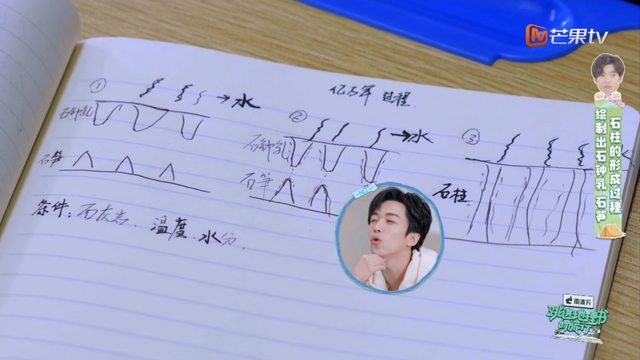 芒果tv
亿万年 过程
① →水
石钟乳
石笋
② →水
石钟乳
石笋
③
石柱
条件：石灰岩、温度、水分.
绘制出石钟乳 石笋
石柱的形成过程